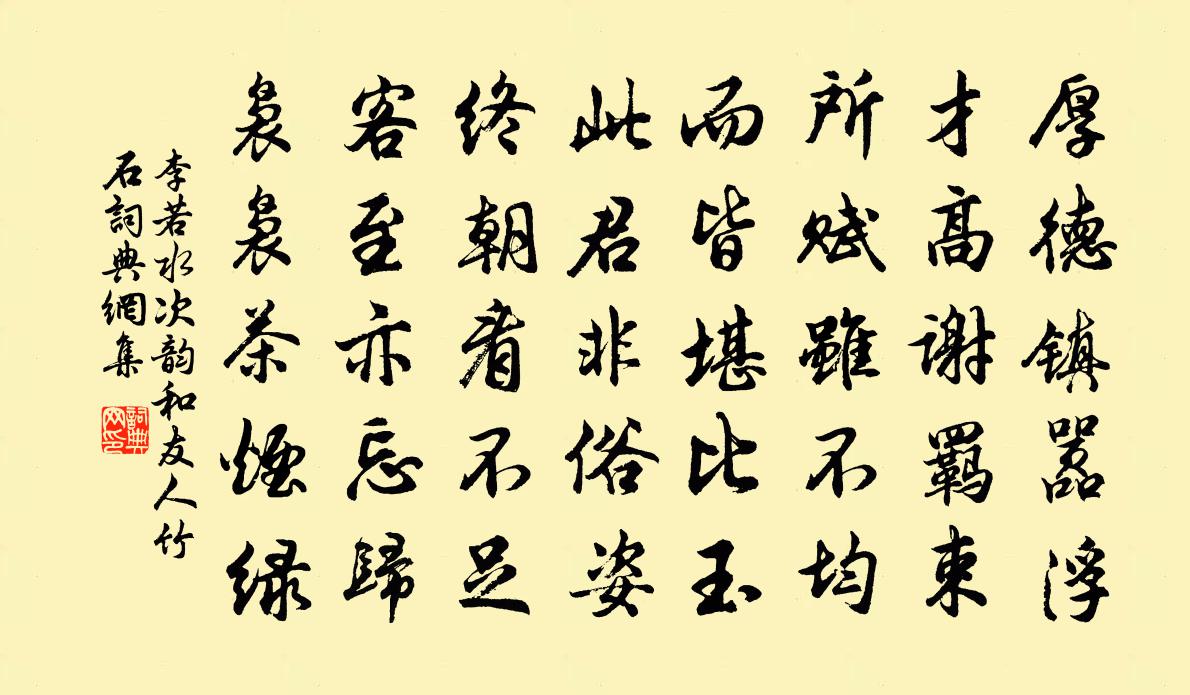 厚德镇嚣浮
才高谢羁束
所赋虽不均
而皆堪比玉
此君非俗姿
终朝看不足
客至亦忘歸
袅袅茶煙绿
李若水次韵和友人竹
石詞典網集
詞典
网印